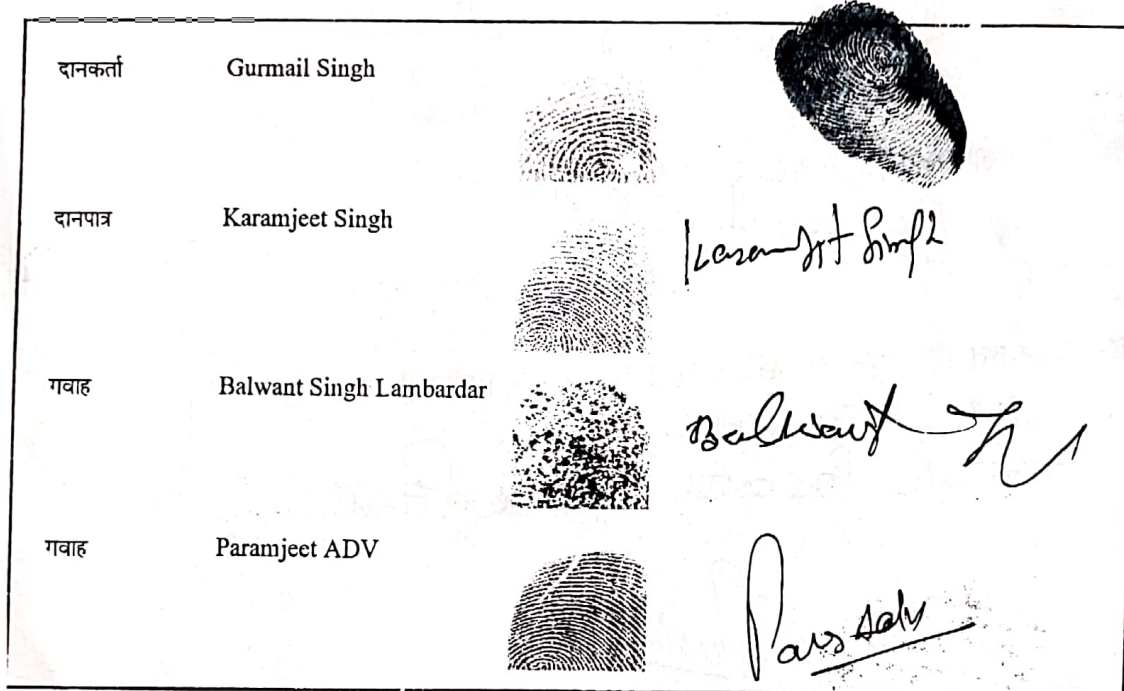 दानकर्ता Gurmail Singh
दानपात्र Karamjeet Singh
Karamjit Singh
गवाह Balwant Singh Lambardar
Balwant
गवाह Paramjeet ADV